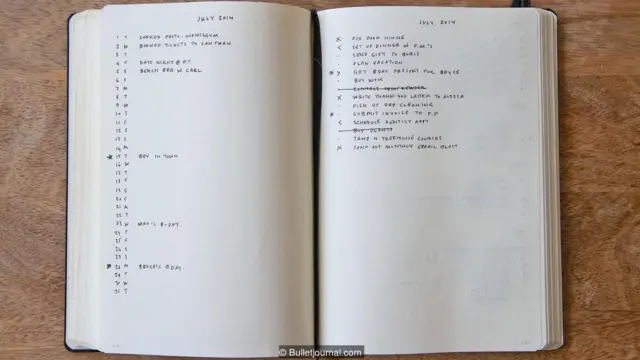 JULY 2014
1 T
2 W BOOKED TICKETS TO
3 T
4 F DATE NIGHT @ P.T
5 S BEACH BBQ W. CARL
6 S
7 M
8 T
9 W
10 T
11 F
12 S
13 S
14 M
* 15 T BEV IN TOWN
16 W
17 T
18 F
19 S
20 S
21 M
22 T
23 W MAX'S B-DAY.
24 T
25 F
26 S
27 S
* 28 M BRYCE'S BDAY.
29 T
30 W
31 T
JULY 2014
X FIX
< SET UP DINNER W
· SEND GIFT TO
· PLAN VACATION
* > GET BDAY PRESENT FOR BRYCE
· BUY
X WRITE THANK YOU LETTER TO
· PICK UP DRY CLEANING
* · SUBMIT INVOICE TO P.P
< SCHEDULE DENTIST APPT
BUY PLANTS
· TAKE 4 TREEHOUSE COURSES
X SEND OUT MONTHLY EMAIL BLAST
© Bulletjournal.com